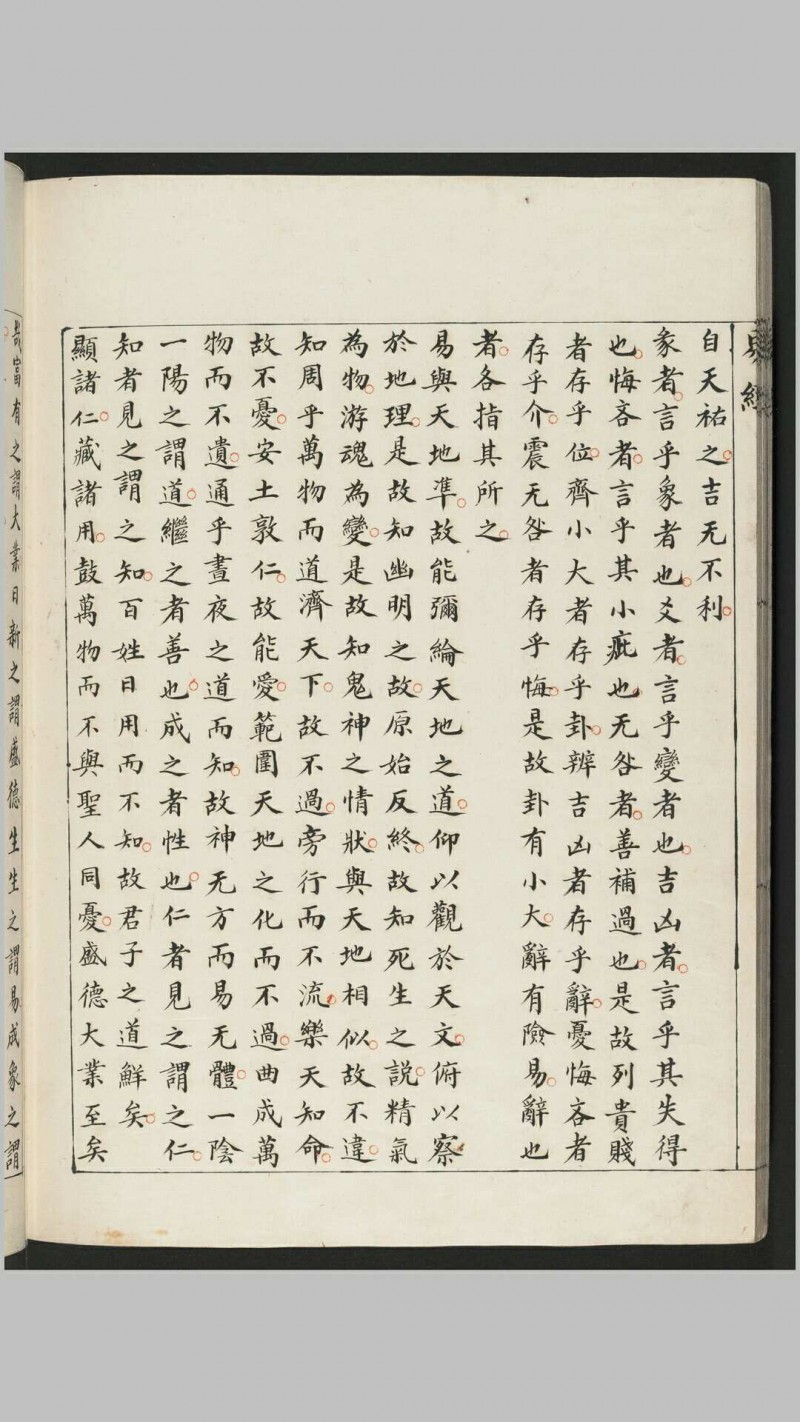 易經
自天祐之。吉无不利。
彖者。言乎象者也。爻者。言乎變者也。吉凶者。言乎其失得
也。悔吝者。言乎其小疵也。无咎者。善補過也。是故列貴賤
者存乎位。齊小大者存乎卦。辨吉凶者存乎辭。憂悔吝者
存乎介。震无咎者存乎悔。是故卦有小大。辭有險易。辭也
者。各指其所之。
易與天地準。故能彌綸天地之道。仰以觀於天文。俯以察
於地理。是故知幽明之故。原始反終。故知死生之說。精氣
為物。游魂為變。是故知鬼神之情狀。與天地相似。故不違。
知周乎萬物而道濟天下。故不過。旁行而不流。樂天知命。
故不憂。安土敦仁。故能愛。範圍天地之化而不過。曲成萬
物而不遺。通乎晝夜之道而知。故神无方而易无體。一陰
一陽之謂道。繼之者善也。成之者性也。仁者見之謂之仁。
知者見之謂之知。百姓日用而不知。故君子之道鮮矣。
顯諸仁。藏諸用。鼓萬物而不與聖人同憂。盛德大業至矣
哉富有之謂大業日新之謂盛德生生之謂易成象之謂